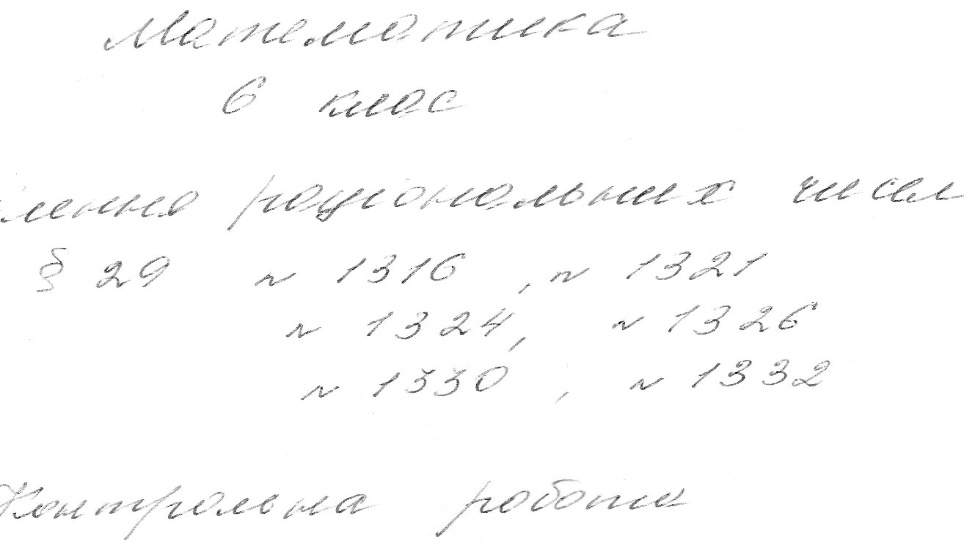 Математика
6 клас
лення раціональних чисел
§ 29 № 1316, № 1321
№ 1324, № 1326
№ 1330, № 1332
Контрольна робота